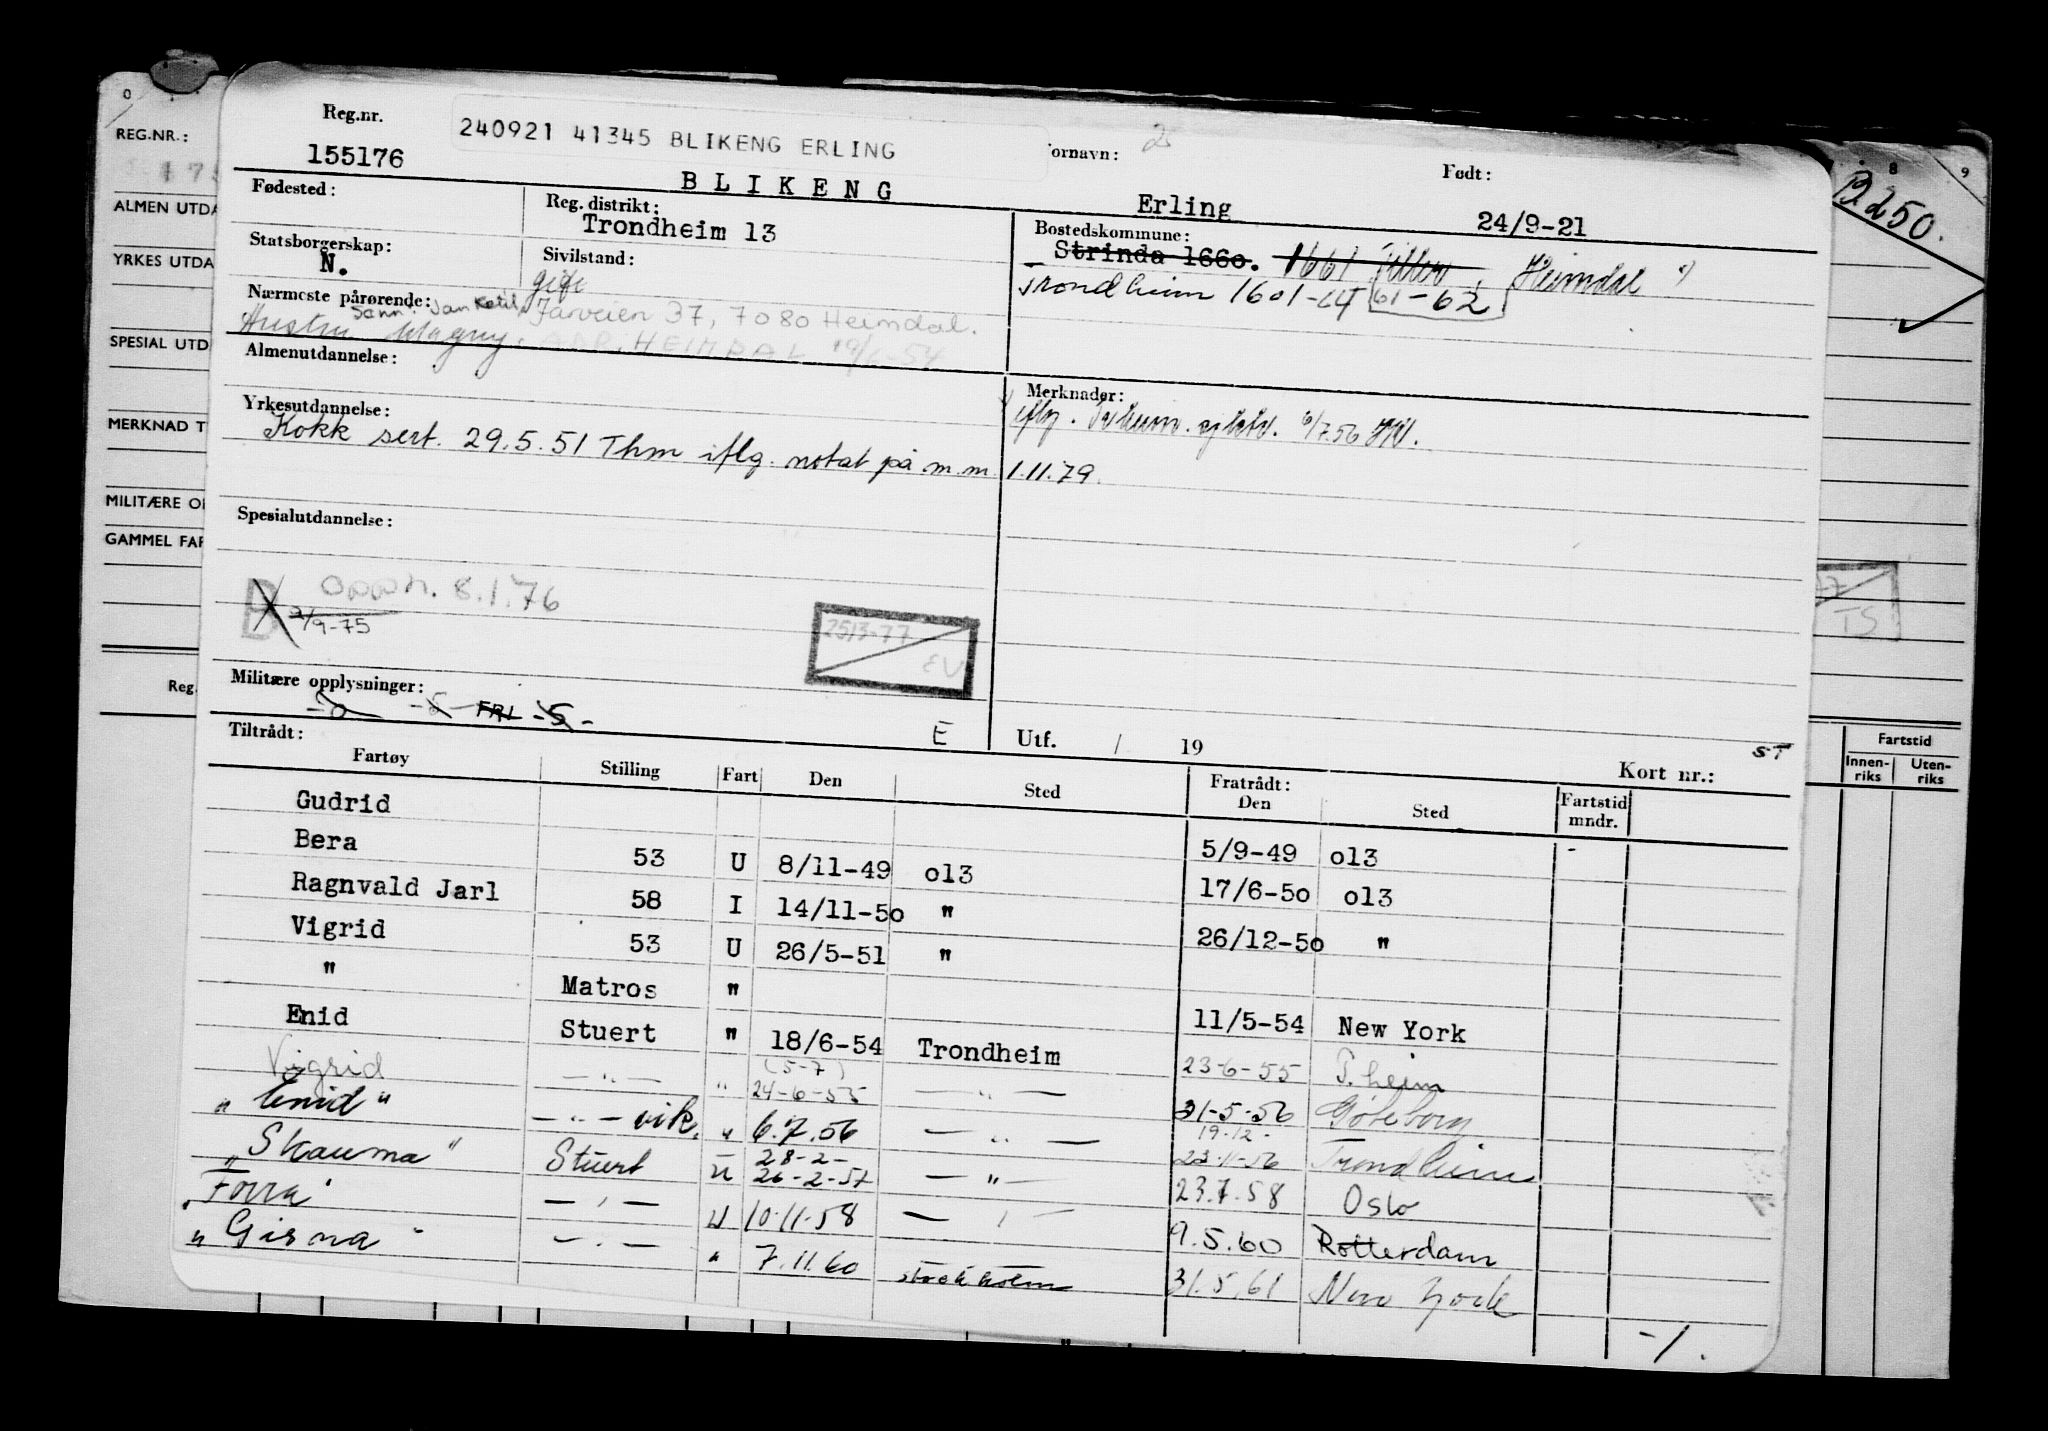 Reg.nr. 240921 41345 BLIKENG ERLING ornavn: 2 Født:
155176 BLIKENG Erling 24/9-21
Fødested: Reg. distrikt: Trondheim 13 Bostedskommune:
Strinda 1660. 1661 Tiller, Heimdal
Trondheim 1601-64 61-62
Statsborgerskap: N. Sivilstand: gift
Nærmeste pårørende: Sønn: Jan Ketil, Jarveien 37, 7080 Heimdal.
Hustru Magny, ADR. HEIMDAL 19/6-54
Almenutdannelse: Merknader:
iflg. 6/7.56
Yrkesutdannelse:
Kokk sert. 29.5.51 Thm iflg. notat på m.m. 1.11.79.
Spesialutdannelse:
B Opph. 8.1.76
2/9-75
2513-77
EV
Militære opplysninger:
FRL -5-
E Utf. / 19 ST
Tiltrådt: Fratrådt: Kort nr.:
Fartøy Stilling Fart Den Sted Den Sted Fartstid mndr.
Gudrid 5/9-49 o13 -
Bera 53 U 8/11-49 o13 17/6-5o o13
Ragnvald Jarl 58 I 14/11-5o " 26/12-5o "
Vigrid 53 U 26/5-51 "
" Matros " 11/5-54 New York
Enid Stuert " 18/6-54 Trondheim 23-6-55 T.heim
Vigrid — " — " (5-7) 24-6-55 — " — 31-5-56 Göteborg
" Enid " — " — vik. " 6.7.56 — " — 19.12- 23-11-56 Trondheim
" Skauma " Stuert U 28-2- 26-2-57 — " — 23.7.58 Oslo
" Forra " — " — U 10.11.58 — " — 9.5.60 Rotterdam
" Girna " — " — " 7.11.60 Stockholm 31.5.61 New York
-1.
0
REG.NR.:
175
ALMEN UTDA
YRKES UTDA
SPESIAL UTD
MERKNAD T
MILITÆRE O
GAMMEL FAR
Reg.
8 9
B.250.
77
TS
Fartstid
Innen-riks Uten-riks